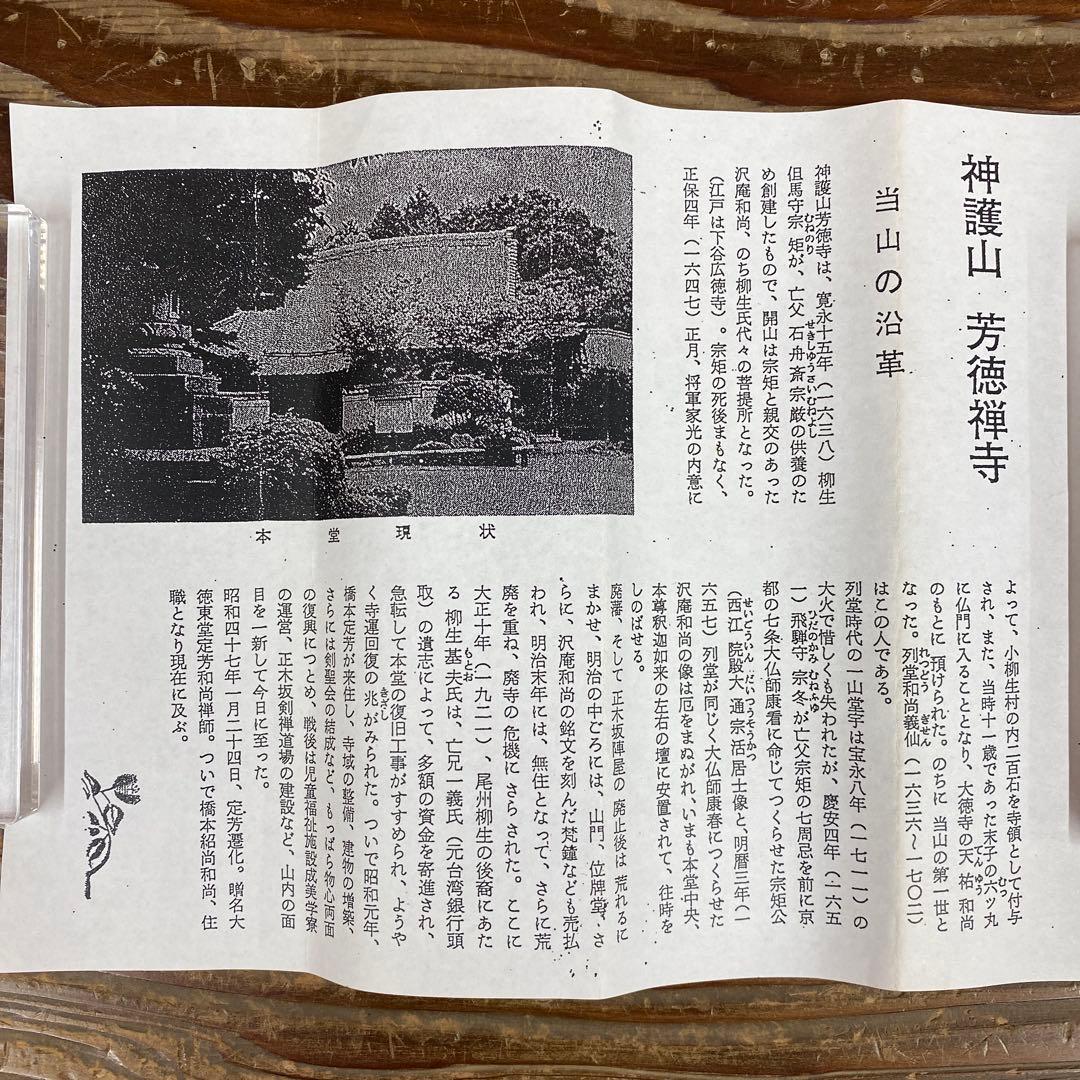 神護山 芳徳禅寺
当山の沿革
神護山芳徳寺は、寛永十五年(一六三八)柳生
但馬守宗矩が、亡父石舟斎宗厳の供養のた
むねのり
せきしゆうさいむねよし
め創建したもので、開山は宗矩と親交のあった
沢庵和尚、のち柳生氏代々の菩提所となった。
(江戸は下谷広徳寺)。宗矩の死後まもなく、
正保四年(一六四七)正月、将軍家光の内意に
本堂現状
よって、小柳生村の内二百石を寺領として付与
され、また、当時十一歳であった末子の六ツ丸
むつ
に仏門に入ることとなり、大徳寺の天祐和尚
てんゆう
のもとに預けられた。のちに当山の第一世と
なった。列堂和尚義仙(一六三六〜一七〇二)
れつどう ぎせん
はこの人である。
列堂時代の一山堂宇は宝永八年(一七一一)の
大火で惜しくも失われたが、慶安四年(一六五
一)飛騨守宗冬が亡父宗矩の七周忌を前に京
ひだのかみむねふゆ
都の七条大仏師康看に命じてつくらせた宗矩公
(西江院殿大通宗活居士像と、明暦三年(一
せいどういん だいつうそうかつ
六五七)列堂が同じく大仏師康春につくらせた
沢庵和尚の像は厄をまぬがれ、いまも本堂中央、
本尊釈迦如来の左右の壇に安置されて、往時を
しのばせる。
廃藩、そして正木坂陣屋の廃止後は荒れるに
まかせ、明治の中ごろには、山門、位牌堂、さ
らに、沢庵和尚の銘文を刻んだ梵鐘なども売払
われ、明治末年には、無住となって、さらに荒
廃を重ね、廃寺の危機にさらされた。ここに
大正十年(一九二一)、尾州柳生の後裔にあた
る柳生基夫氏は、亡兄一義氏(元台湾銀行頭
もとお
取)の遺志によって、多額の資金を寄進され、
急転して本堂の復旧工事がすすめられ、ようや
く寺運回復の兆がみられた。ついで昭和元年、
きざし
橋本定芳が来住し、寺域の整備、建物の増築、
さらには剣聖会の結成など、もっぱら物心両面
の復興につとめ、戦後は児童福祉施設成美学寮
の運営、正木坂剣禅道場の建設など、山内の面
目を一新して今日に至った。
昭和四十七年一月二十四日、定芳遷化。贈名大
徳東堂定芳和尚禅師。ついで橋本紹尚和尚、住
職となり現在に及ぶ。